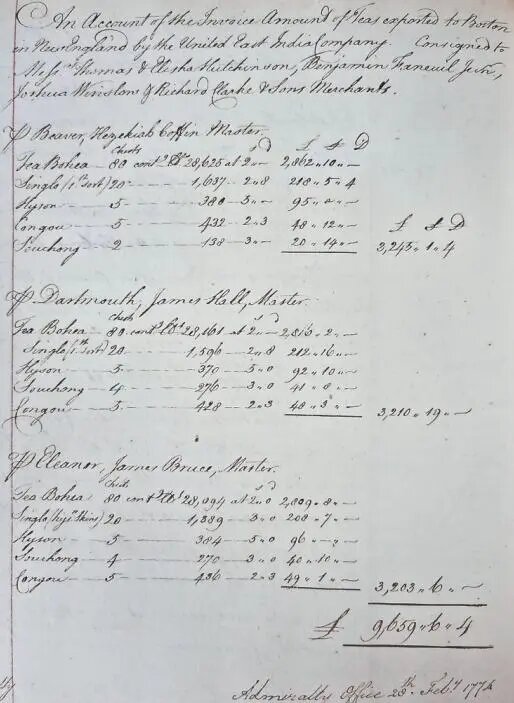 An Account of the Invoice Amount of Teas exported to Boston
in New England by the United East India Company. Consigned to
Mess.rs Thomas & Elisha Hutchinson, Benjamin Faneuil Jun.r,
Joshua Winslow & Richard Clarke & Sons Merchants.
P Beaver, Hezekiah Coffin Master.
Chests s D £ S D
Tea Bohea 80 cont.g lbs 28,625 at 2 " - 2,862 " 10 " -
Singlo (1st sort) 20 1,637 - 2 " 8 218 " 5 " 4
Hyson 5 380 - 5 " - 95 " " -
Congou 5 432 - 2 " 3 48 " 12 " - £ S D
Souchong 2 138 - 3 " - 20 " 14 " - 3,245 " 1 " 4
P Dartmouth, James Hall, Master.
Chests s D
Tea Bohea 80 cont.g lbs 28,161 at 2 " - 2,816 " 2 " -
Singlo (1st sort) 20 1,596 - 2 " 8 212 " 16 " -
Hyson 5 370 - 5 " 0 92 " 10 " -
Souchong 4 276 - 3 " 0 41 " 8 " -
Congou 5 428 - 2 " 3 48 " 3 " - 3,210 " 19 " -
P Eleanor, James Bruce, Master.
Chests s D
Tea Bohea 80 cont.g lbs 28,094 at 2 " 0 2,809 " 8 " -
Singlo (Hys.n Skins) 20 1,389 3 " 0 208 " 7 " -
Hyson 5 384 - 5 " 0 96 " - " -
Souchong 4 270 - 3 " 0 40 " 10 " -
Congou 5 436 - 2 " 3 49 " 1 " - 3,203 " 6 " -
£ 9,659 " 6 " 4
Admiralty Office 28th Feb.y 1774